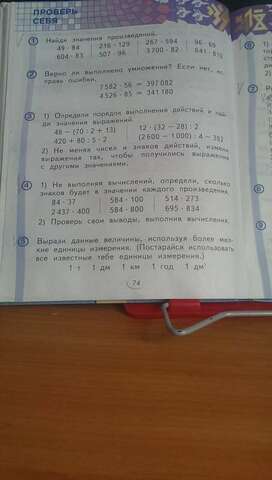 ПРОВЕРЬ
СЕБЯ
1 Найди значения произведений.
49 · 84 216 · 129 267 · 594 96 · 65
604 · 83 507 · 96 3 700 · 82 841 ·
2 Верно ли выполнено умножение? Если нет, ис
правь ошибки.
7 582 · 56 = 397 082
4 526 · 85 = 341 180
3 1) Определи порядок выполнения действий и най
ди значения выражений.
48 − (70 : 2 + 13) 12 · (32 − 28) : 2
420 + 80 : 5 · 2 (2 600 − 1 000) : 4 − 3
2) Не меняя чисел и знаков действий, измени
выражения так, чтобы получились выражения
с другими значениями.
4 1) Не выполняя вычислений, определи, сколько
знаков будет в значении каждого произведения.
84 · 37 584 · 100 514 · 273
2 437 · 400 584 · 800 695 · 834
2) Проверь свои выводы, выполнив вычисления.
5 Вырази данные величины, используя более мел-
кие единицы измерения. (Постарайся использовать
все известные тебе единицы измерения.)
1 т 1 дм 1 км 1 год 1 дм²
74
6
7
8
9